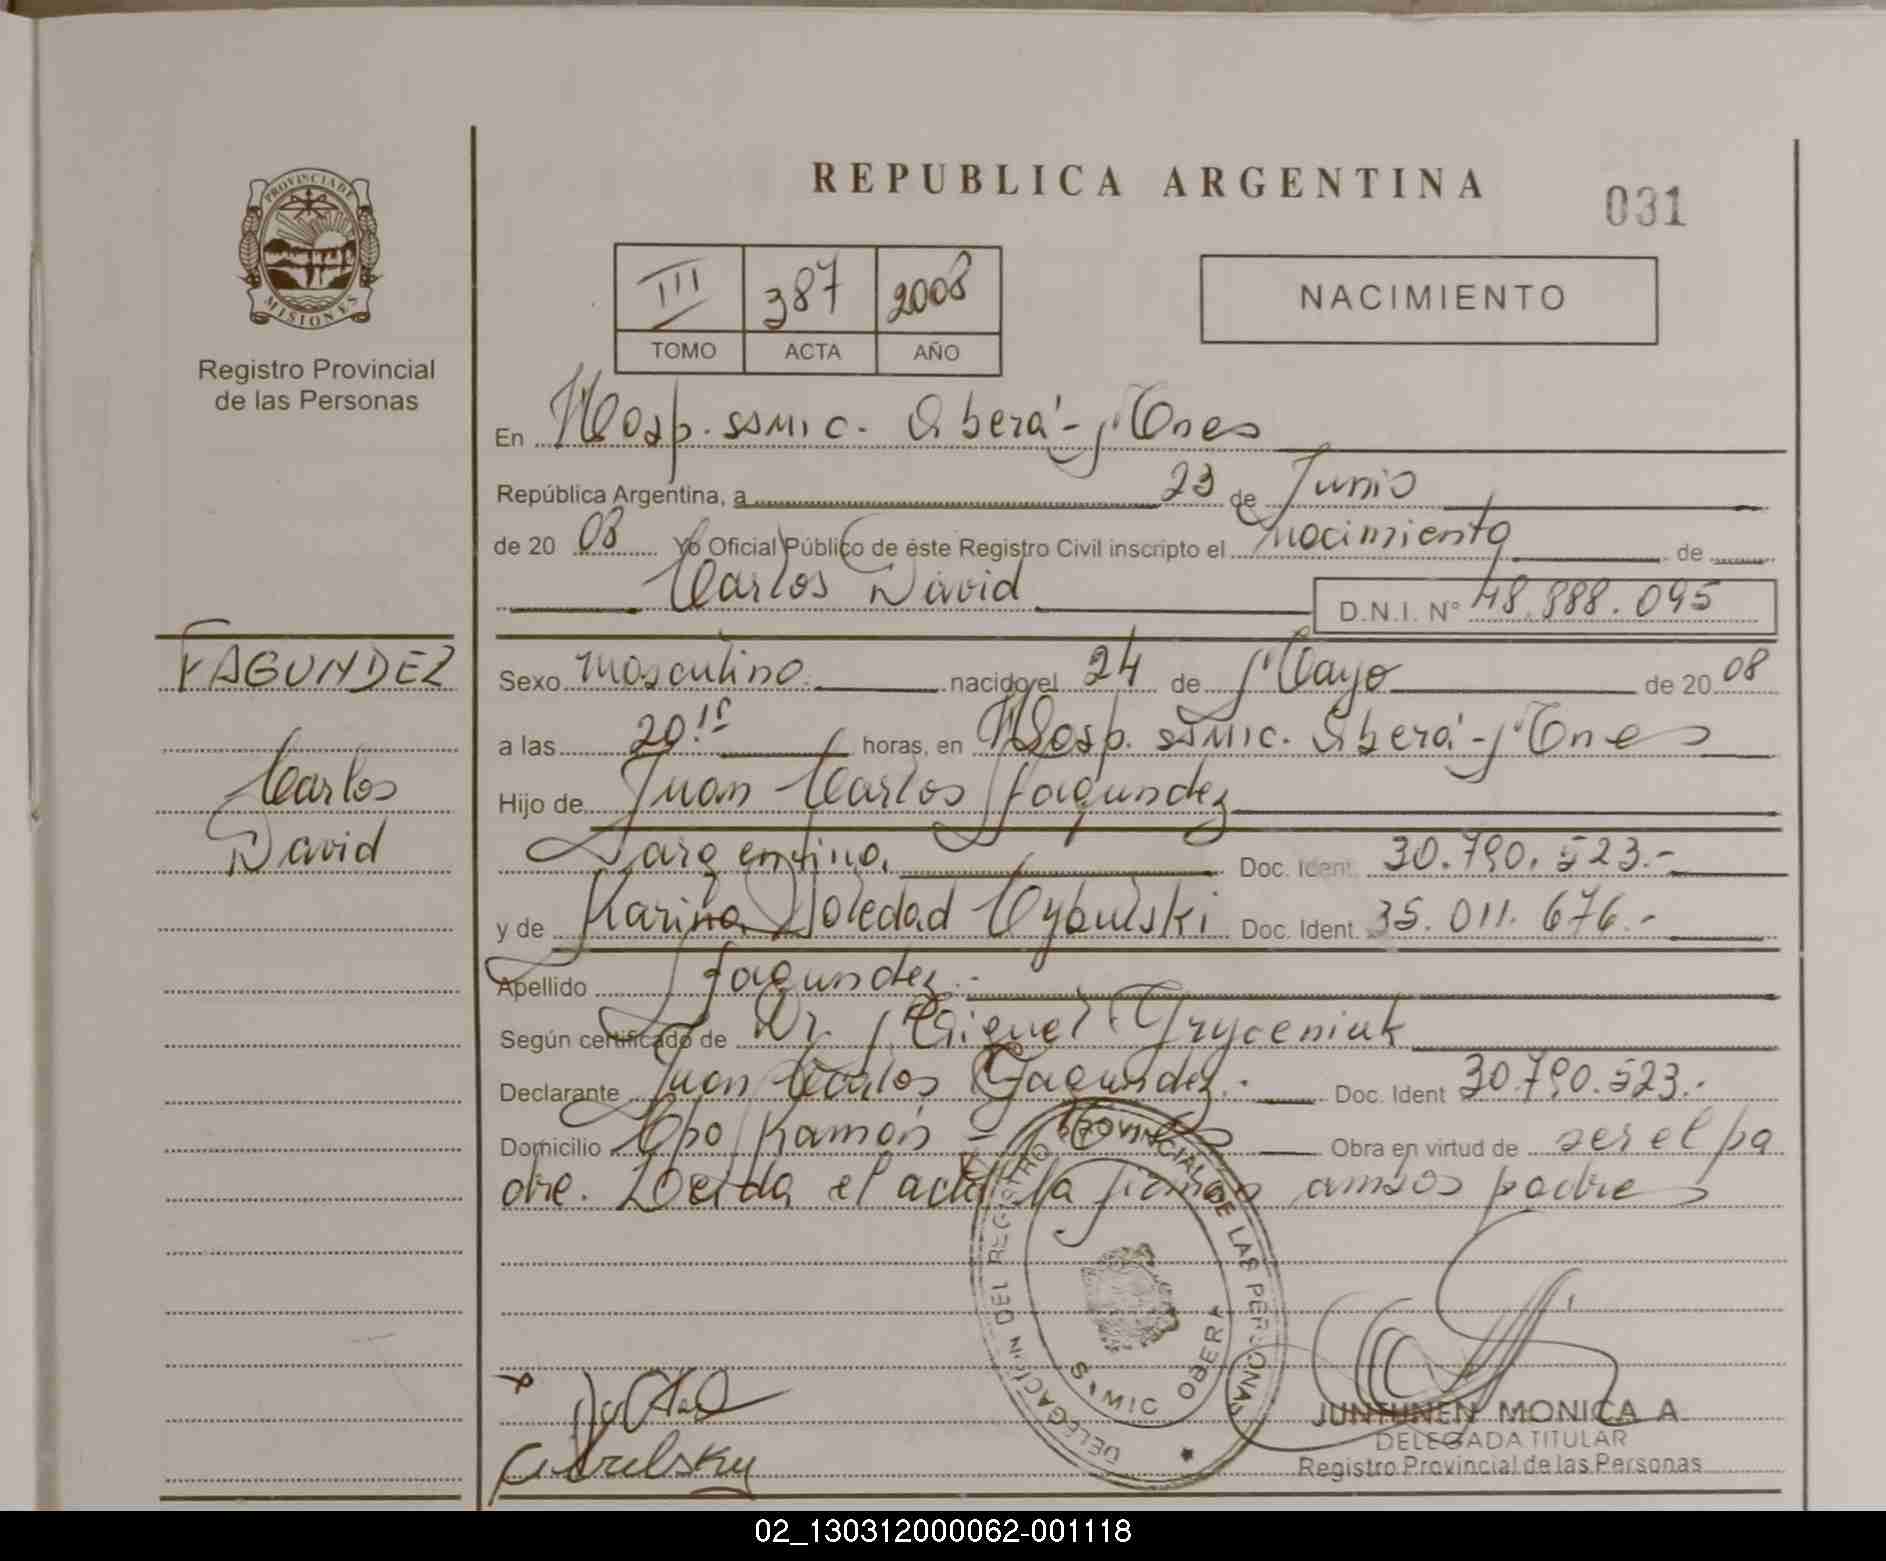 REPUBLICA ARGENTINA
031
PROVINCIA DE MISIONES
Registro Provincial
de las Personas
III 387 2008
TOMO ACTA AÑO
NACIMIENTO
En Hosp. SAMIC. Oberá - Mnes
República Argentina, a 23 de Junio
de 20 08 Yo Oficial Público de éste Registro Civil inscripto el nacimiento de
Carlos David D.N.I. N° 48.888.095
FAGUNDEZ
Carlos
David
Sexo masculino. nacido el 24 de Mayo de 20 08
a las 20.15 horas, en Hosp. SAMIC. Oberá - Mnes
Hijo de Juan Carlos Fagundez
argentino. Doc. Ident. 30.790.523.-
y de Karina Soledad Cybulski Doc. Ident. 35.011.676.-
Apellido Fagundez.-
Según certificado de Dr. Miguel Gryceniuk
Declarante Juan Carlos Fagundez.- Doc. Ident 30.790.523.-
Domicilio Cpo Ramón - Mnes Obra en virtud de ser el pa
dre. Leída el acta la firman ambos padres
DELEGACION DEL REGISTRO PROVINCIAL DE LAS PERSONAS
SAMIC OBERA
JUNTUNEN MONICA A
DELEGADA TITULAR
Registro Provincial de las Personas
02_130312000062-001118